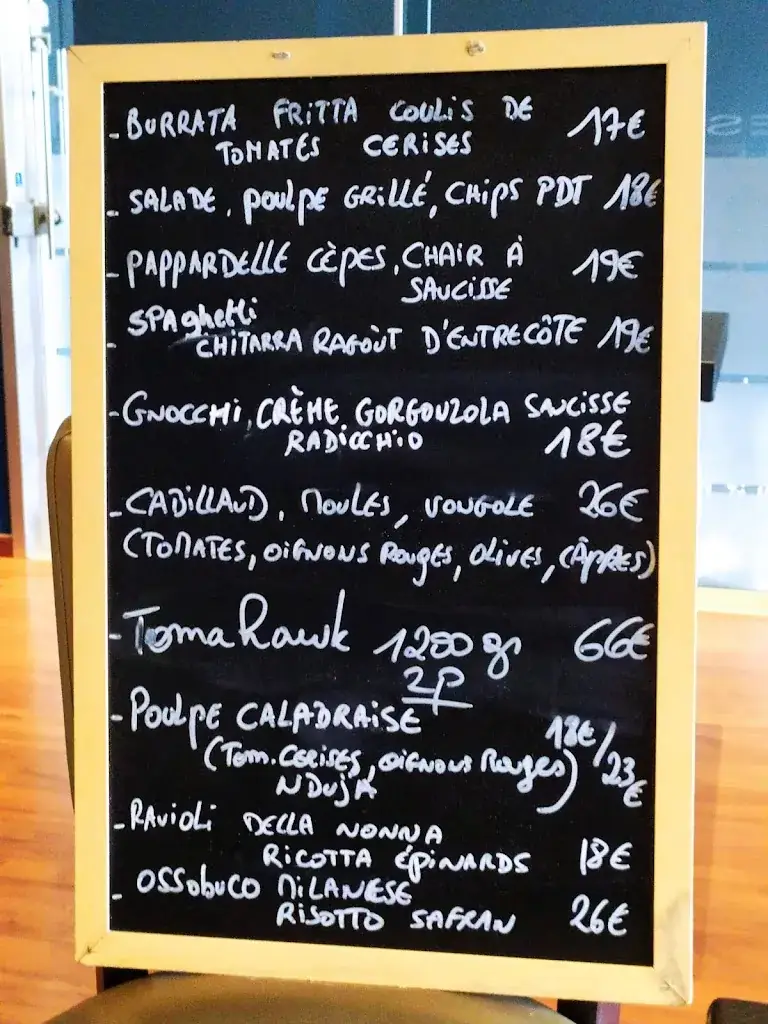 - BURRATA FRITTA COULIS DE 17€
TOMATES CERISES
- SALADE, POULPE GRILLÉ, CHIPS PDT 18€
- PAPPARDELLE CÈPES, CHAIR À 19€
SAUCISSE
- SPAghetti
CHITARRA RAGOÛT D'ENTRECÔTE 19€
- GNOCCHI, CRÈME GORGONZOLA SAUCISSE
RADICCHIO 18€
- CABILLAUD, MOULES, VONGOLE 26€
(TOMATES, OIGNONS ROUGES, OLIVES, CÂPRES)
- Tomahawk 1200 gr 66€
2P
- POULPE CALABRAISE 18€/23€
(TOM. CERISES, OIGNONS ROUGES)
NDUJA
- RAVIOLI DELLA NONNA
RICOTTA ÉPINARDS 18€
- OSSOBUCO MILANESE
RISOTTO SAFRAN 26€